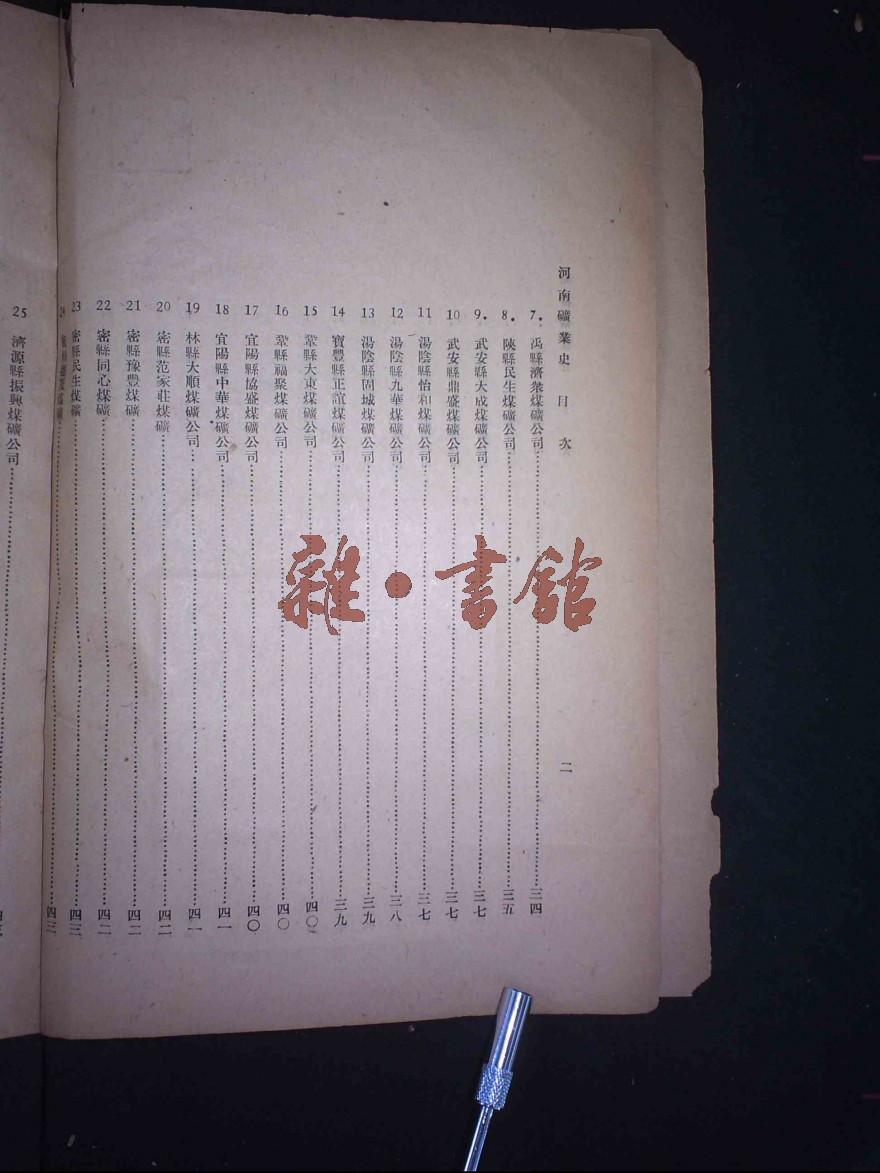 河南礦業史 目次 二
7. 禹縣濟衆煤礦公司……三四
8. 陝縣民生煤礦公司……三五
9. 武安縣大成煤礦公司……三七
10 武安縣鼎盛煤礦公司……三七
11 湯陰縣怡和煤礦公司……三七
12 湯陰縣九華煤礦公司……三八
13 湯陰縣固城煤礦公司……三九
14 寶豐縣正誼煤礦公司……三九
15 鞏縣大東煤礦公司……四〇
16 鞏縣福聚煤礦公司……四〇
17 宜陽縣協盛煤礦公司……四〇
18 宜陽縣中華煤礦公司……四一
19 林縣大順煤礦公司……四一
20 密縣范家莊煤礦……四二
21 密縣豫豐煤礦……四二
22 密縣同心煤礦……四二
23 密縣民生煤礦……四三
24 ……四三
25 濟源縣振興煤礦公司……
雜·書館